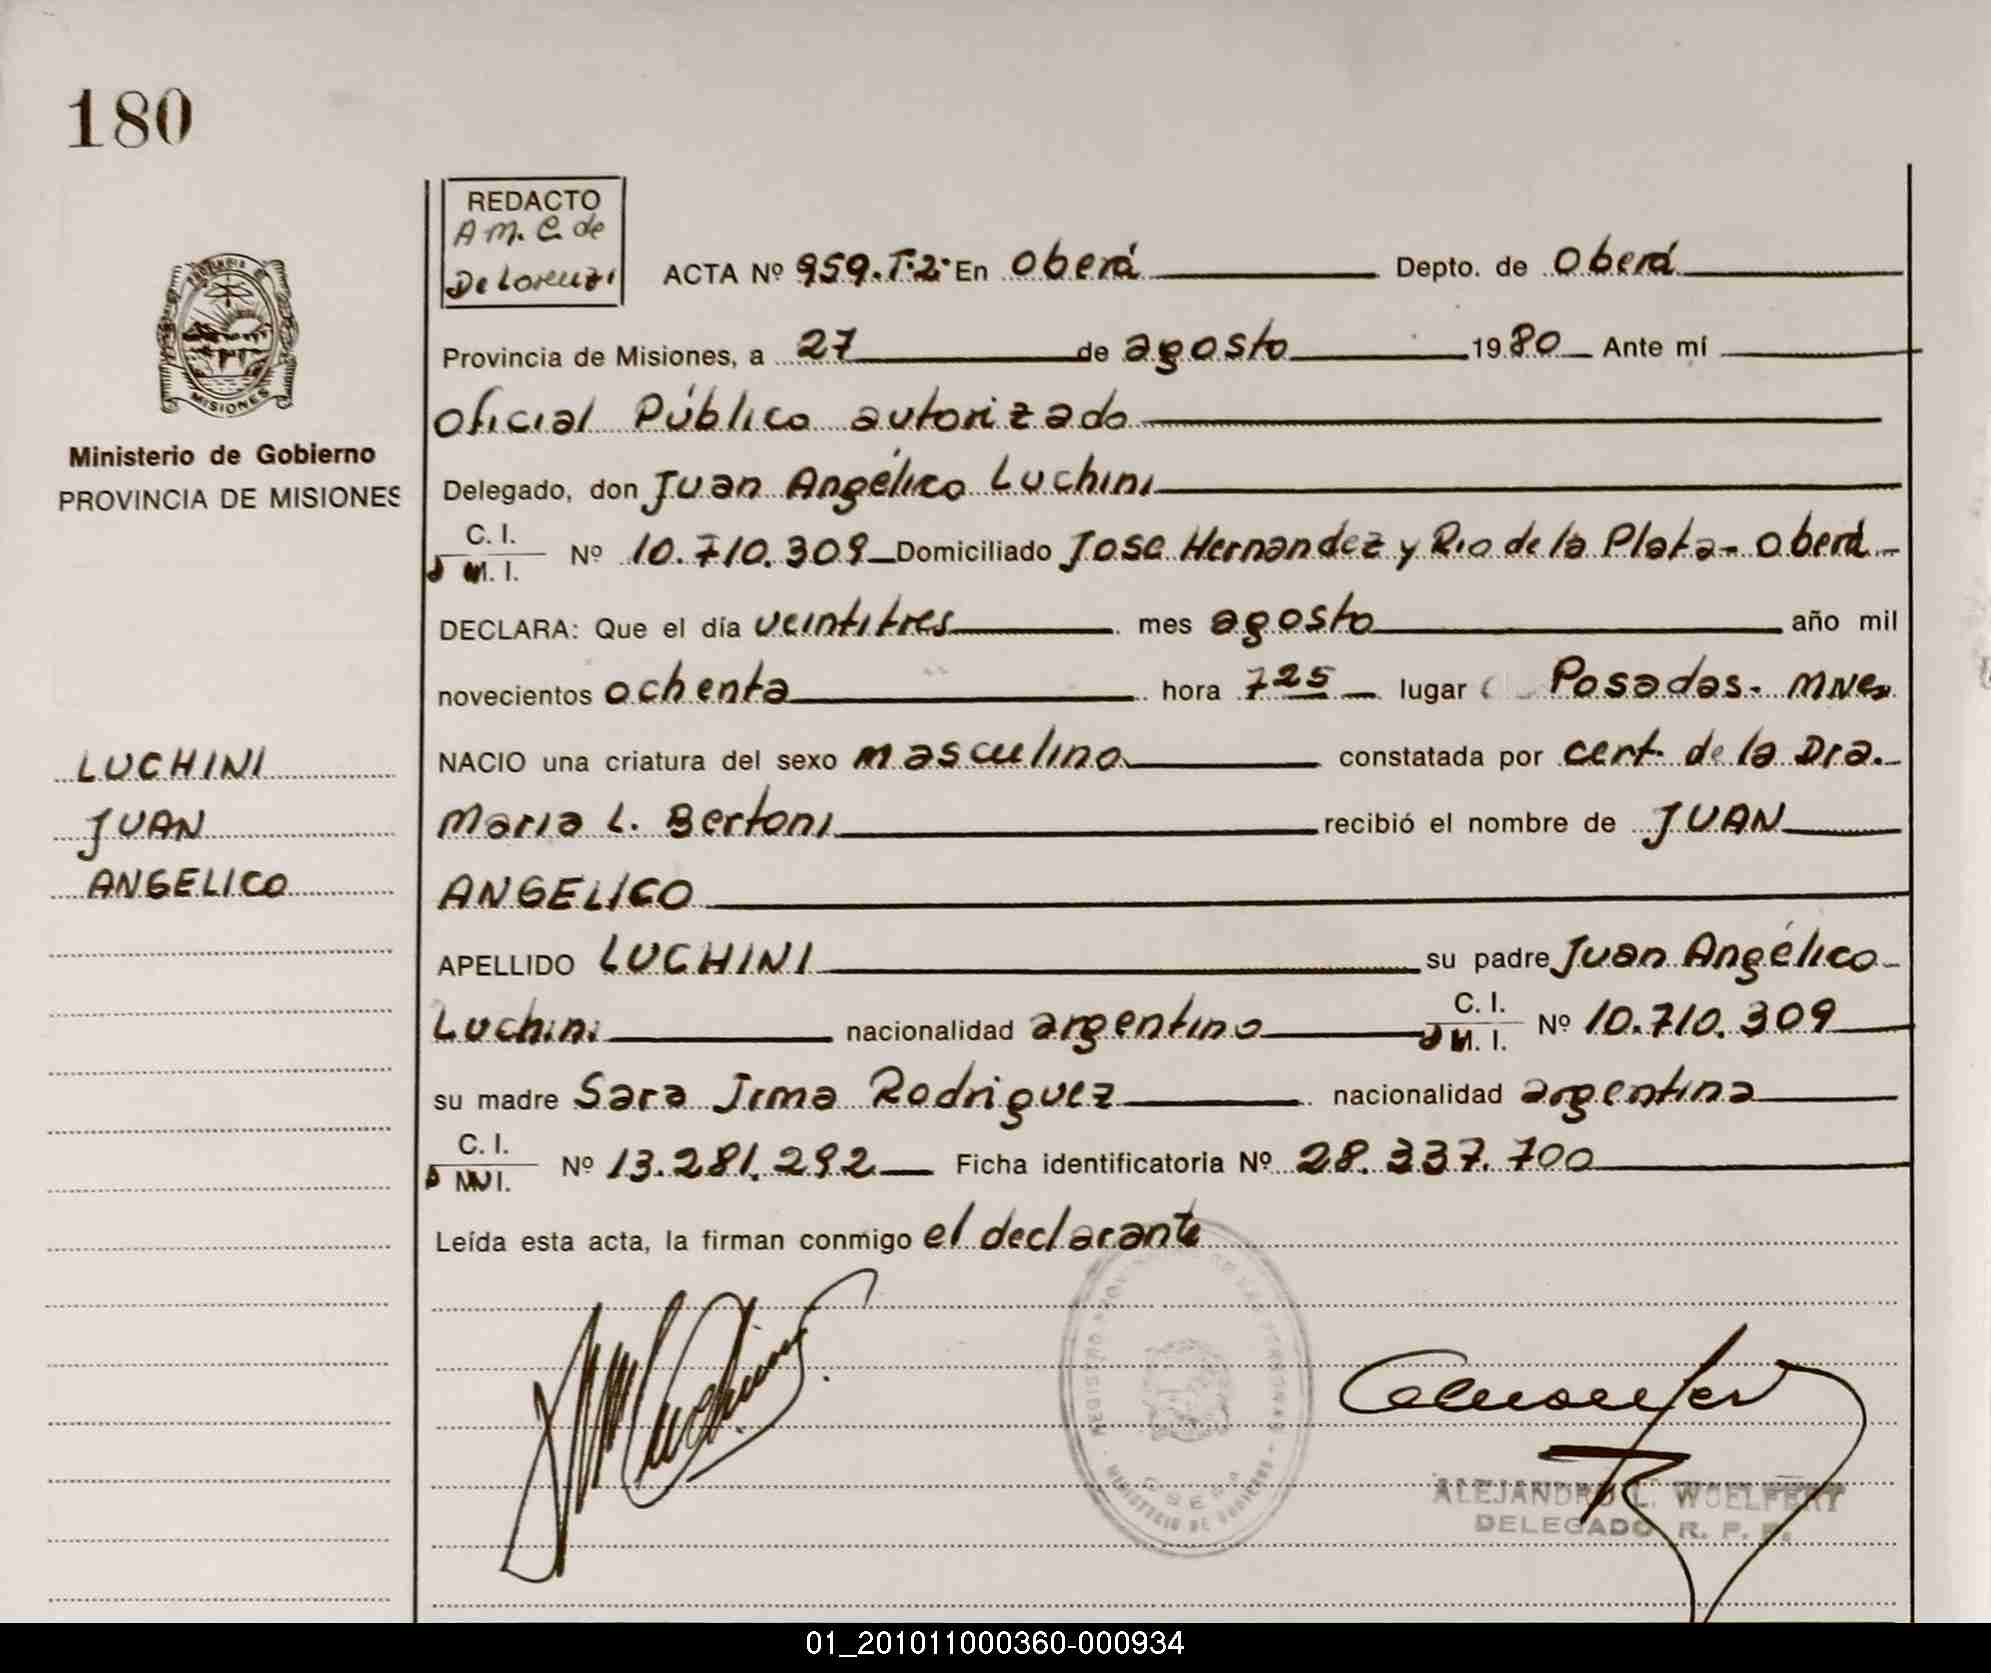 180
REDACTO
A M. C. de
De Lorenzi
ACTA Nº 959.T.2. En Oberá Depto. de Oberá
Provincia de Misiones, a 27 de agosto 1980 Ante mí
Oficial Público autorizado
PROVINCIA DE MISIONES
Ministerio de Gobierno
PROVINCIA DE MISIONES
Delegado, don Juan Angélico Luchini
C. I.
M. I. Nº 10.710.309 Domiciliado Jose Hernandez y Rio de la Plata - Oberá
DECLARA: Que el día veintitres mes agosto año mil
novecientos ochenta hora 7 25 lugar Posadas - Mnes
LUCHINI
JUAN
ANGELICO
NACIO una criatura del sexo masculino constatada por cert. de la Dra.
Maria L. Bertoni recibió el nombre de JUAN
ANGELICO
APELLIDO LUCHINI su padre Juan Angélico
Luchini nacionalidad argentino C. I.
M. I. Nº 10.710.309
su madre Sara Irma Rodriguez nacionalidad argentina
C. I.
Nº 13.281.292 Ficha identificatoria Nº 28.337.700
Leída esta acta, la firman conmigo el declarante
MINISTERIO DE GOBIERNO
OBERA
ALEJANDRO L. WOELFERT
DELEGADO R. P. P.
01_201011000360-000934